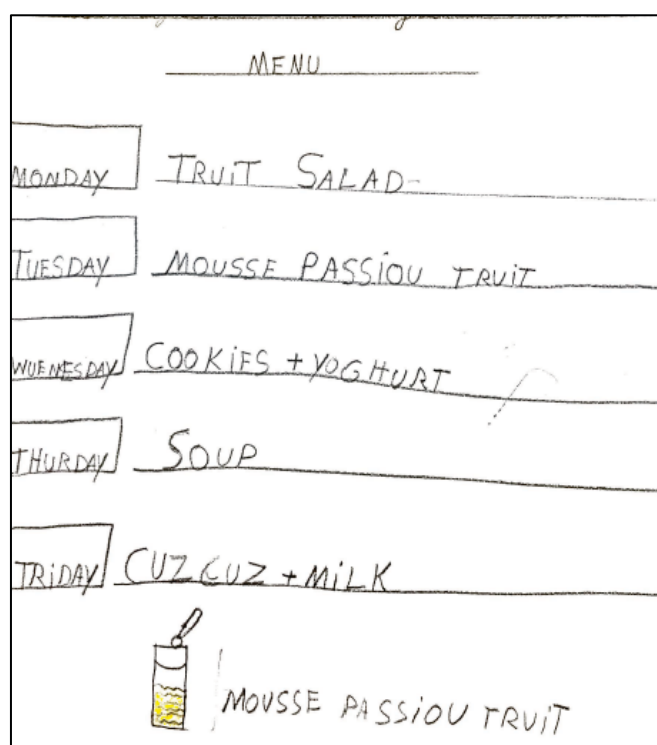 MENU
MONDAY TRUIT SALAD
TUESDAY MOUSSE PASSIOU TRUIT
WUENESDAY COOKIES + YOGHURT
THURDAY SOUP
TRIDAY CUZCUZ + MILK
MOUSSE PASSIOU TRUIT